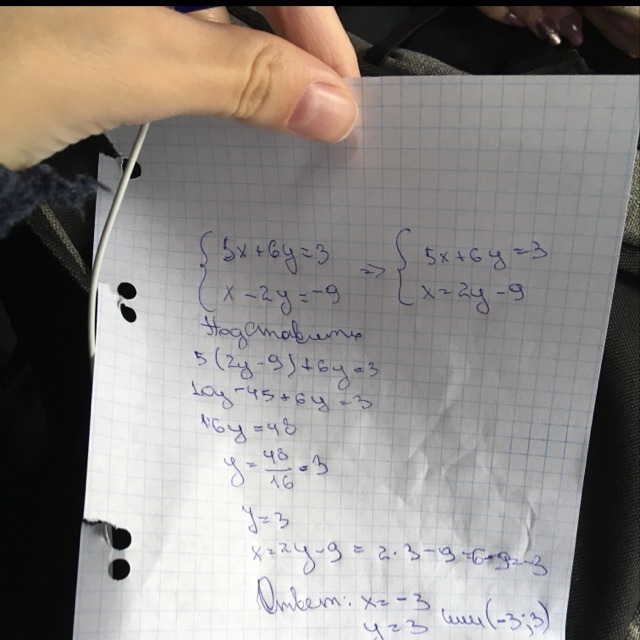 { 5x+6y=3 => { 5x+6y=3
{ x-2y=-9 { x=2y-9
Подставить
5(2y-9)+6y=3
10y-45+6y=3
16y=48
y=48/16=3
y=3
x=2y-9=2·3-9=6-9=-3
Ответ: x=-3
y=3 или (-3;3)